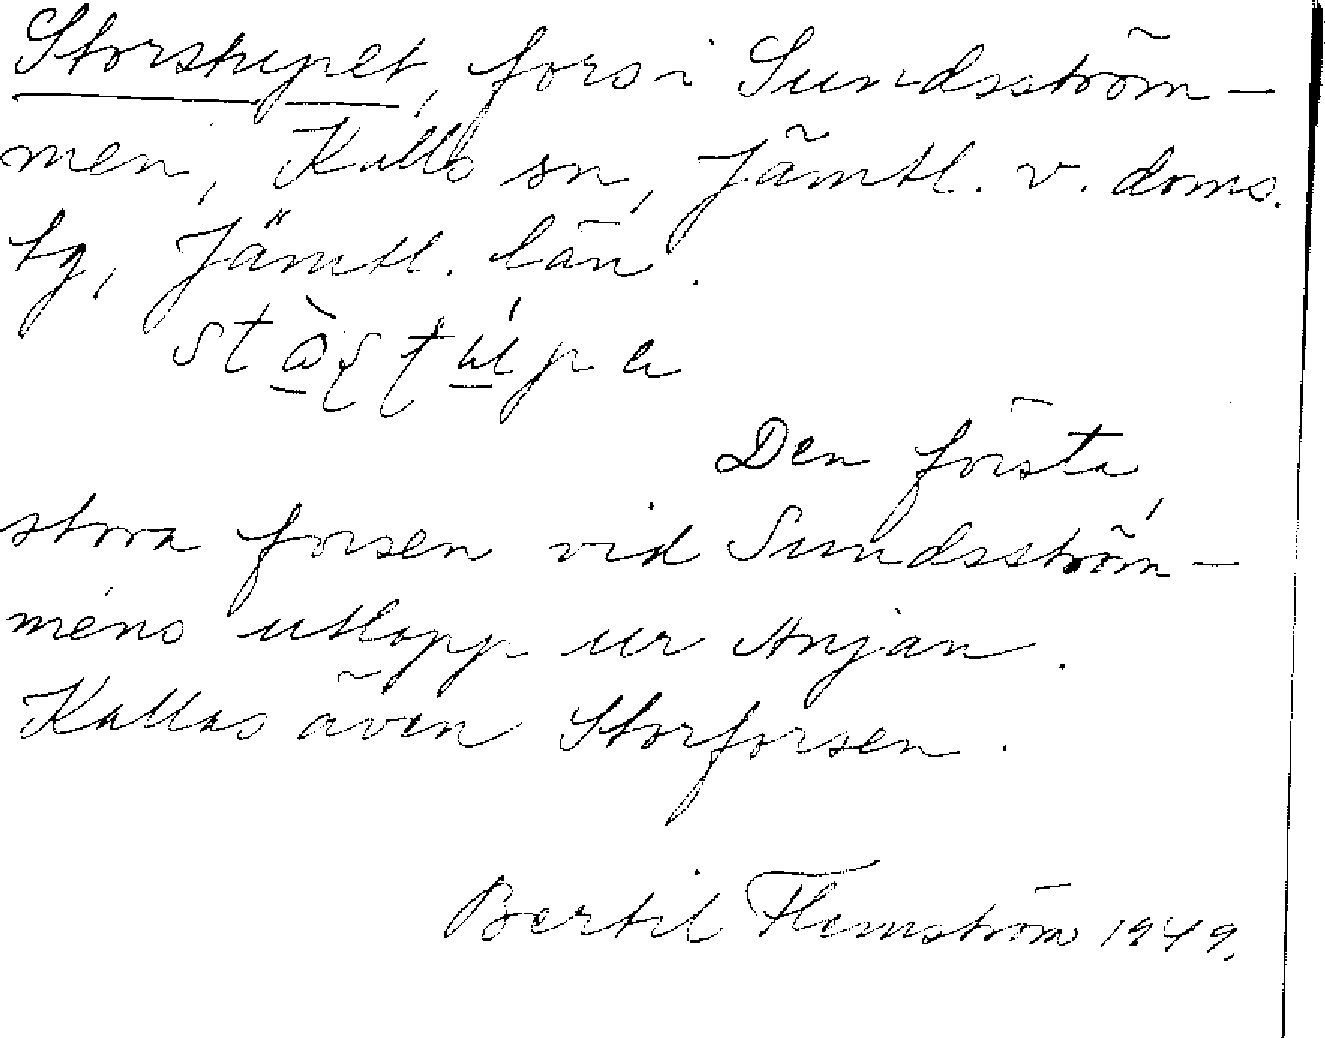 Storstupet, fors i Sundsström-
men, Kalls sn, Jämtl. v. doms.
tg, Jämtl. län.
Den första
stora forsen vid Sundsström-
mens utlopp ur Anjan.
Kallas även Storforsen.
Bertil Flemström 1949.